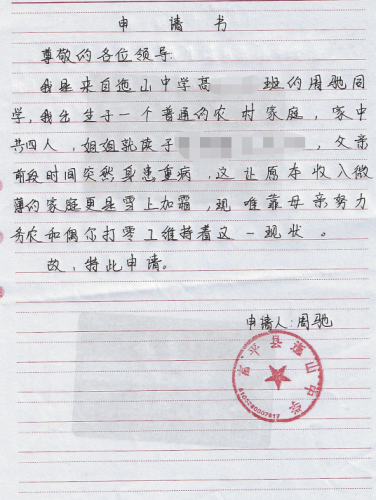 申请书
尊敬的各位领导:
我是来自迤山中学高 班的周驰同
学,我出生于一个普通的农村家庭,家中
共四人,姐姐就读于 ,父亲
前段时间突然身患重病,这让原本收入微
薄的家庭更是雪上加霜,现唯靠母亲努力
务农和偶尔打零工维持着这一现状。
故,特此申请。
申请人:周驰
富平县迤山中学